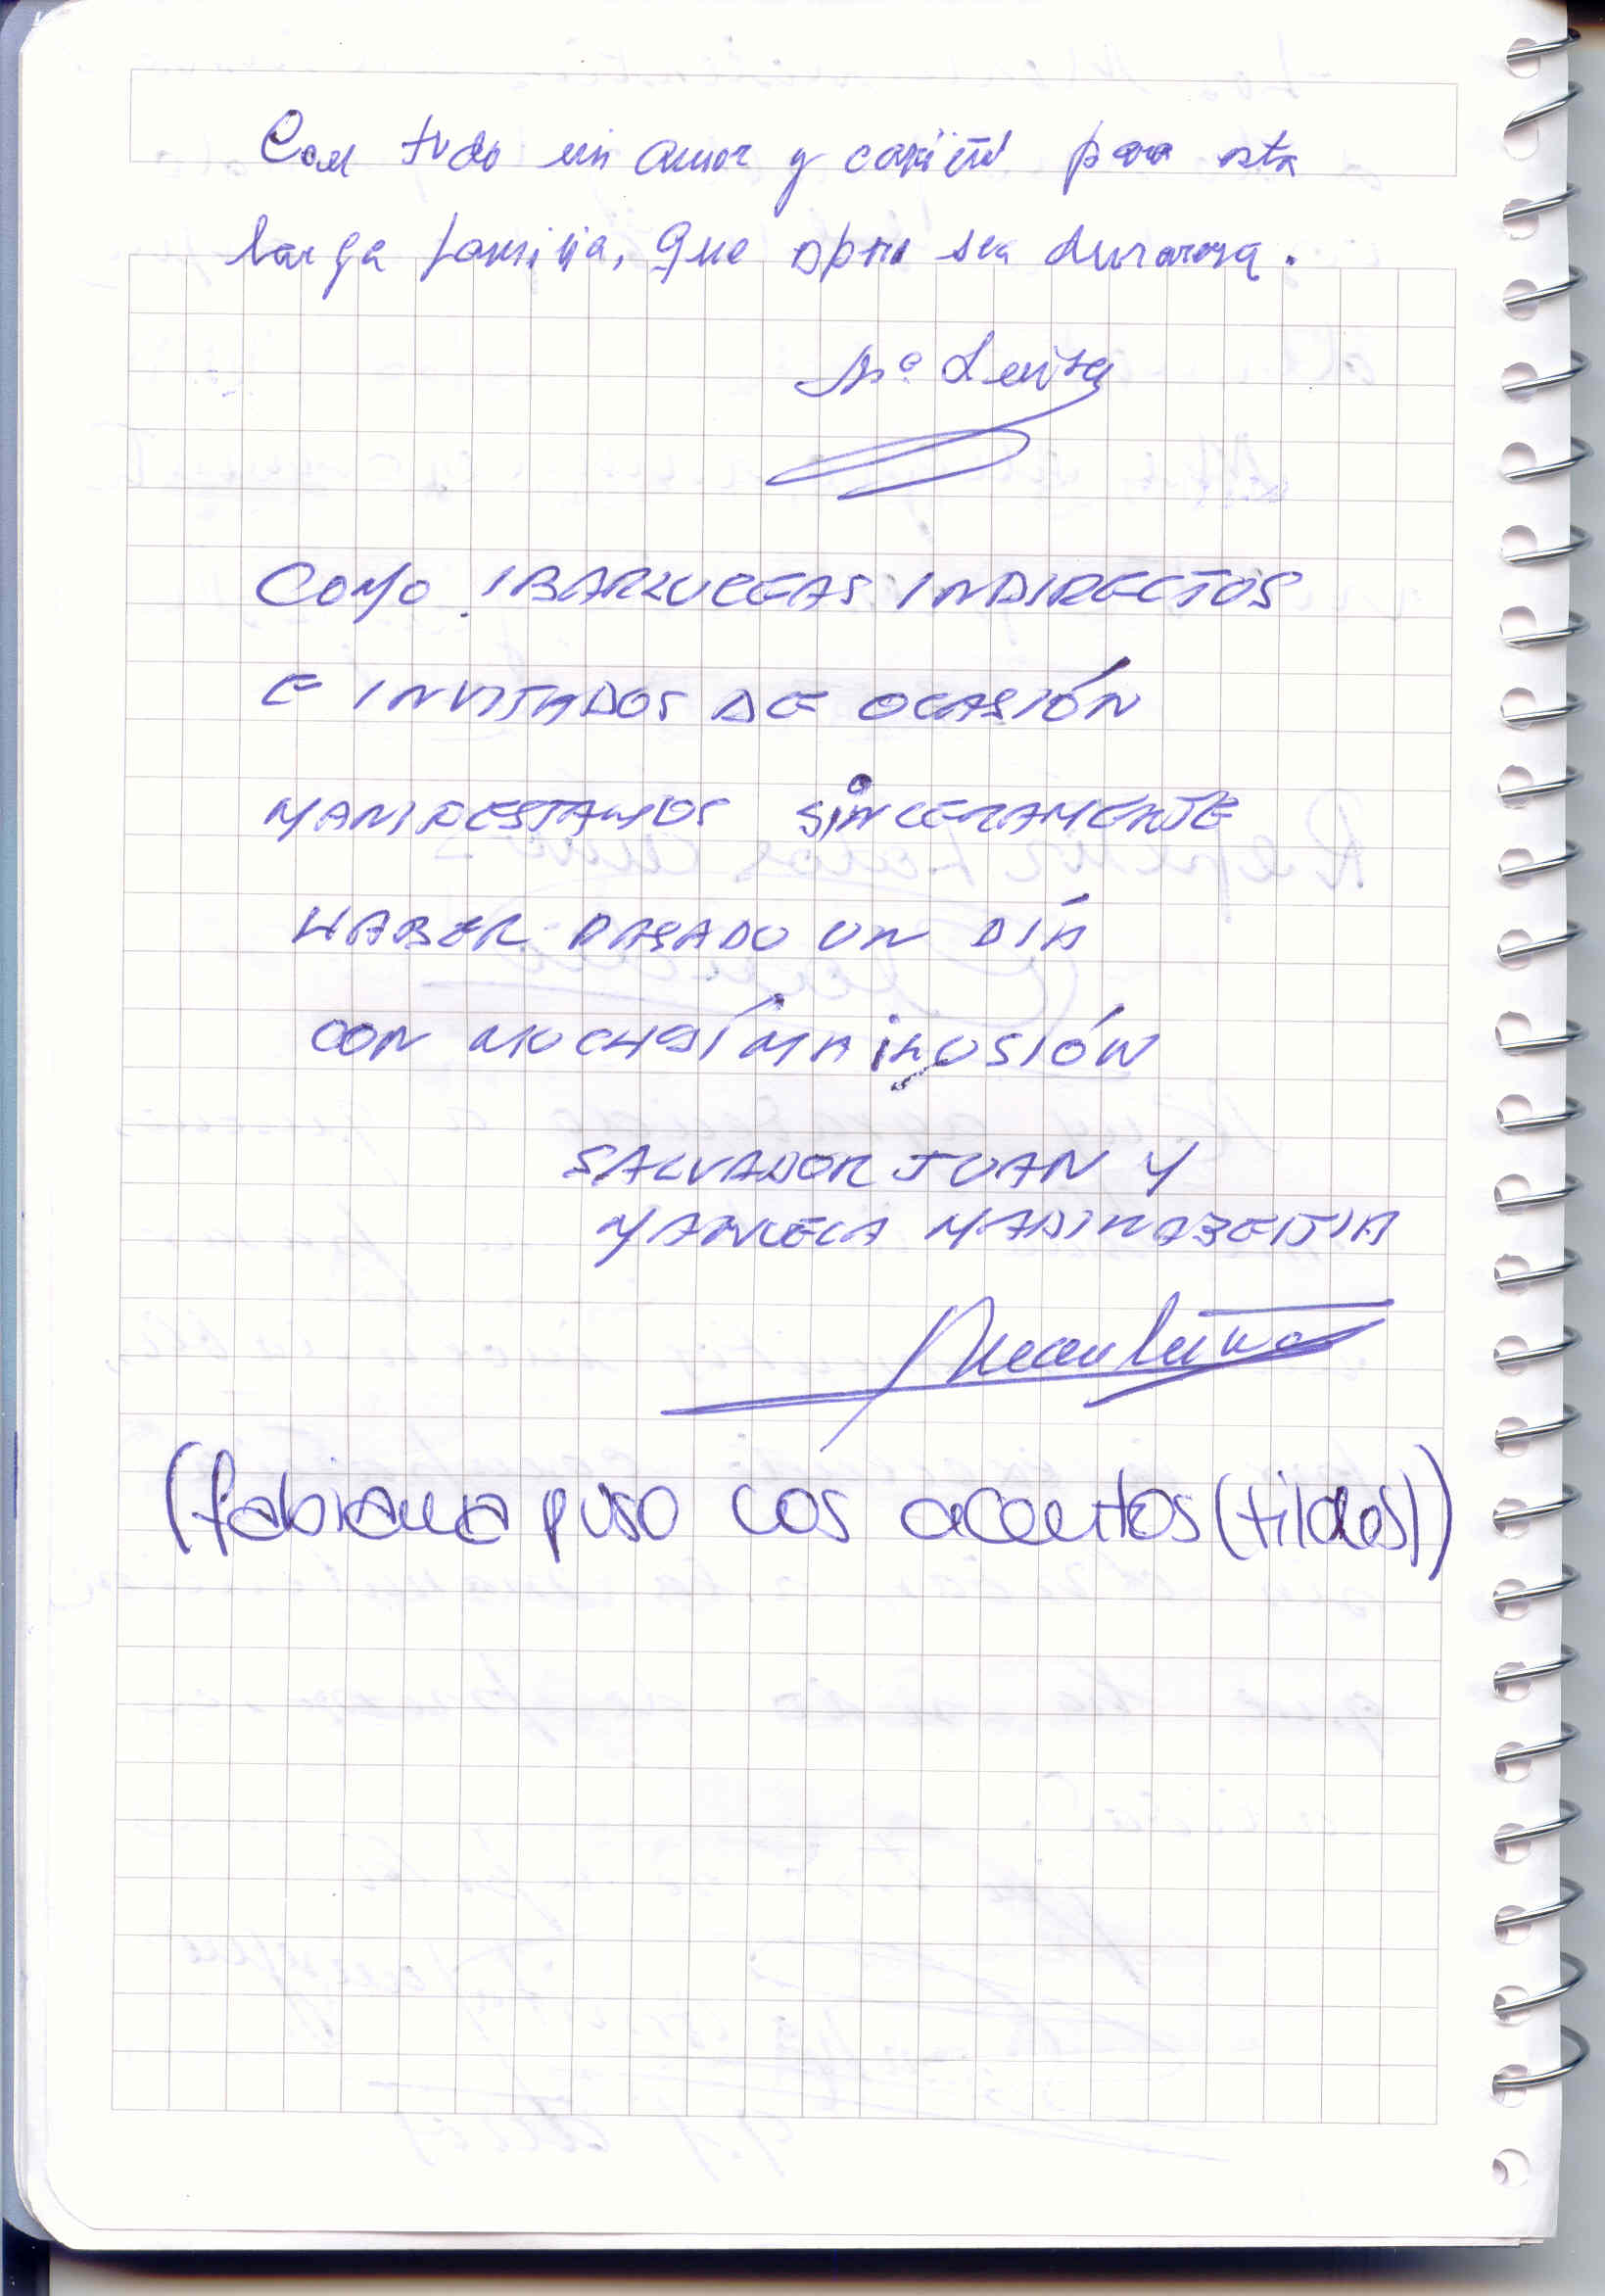 Con todo mi amor y cariño para esta
larga familia, que espero sea durarera.
Mª Luisa
COMO IBARLUCEAS INDIRECTOS
E INVITADOS DE OCASIÓN
MANIFESTAMOS SINCERAMENTE
HABER PASADO UN DÍA
CON MUCHSÍMA iLUSIÓN
SALVADOR JUAN Y
MANUELA MADINABEITIA
(fabiana puso los acentos (tildes))